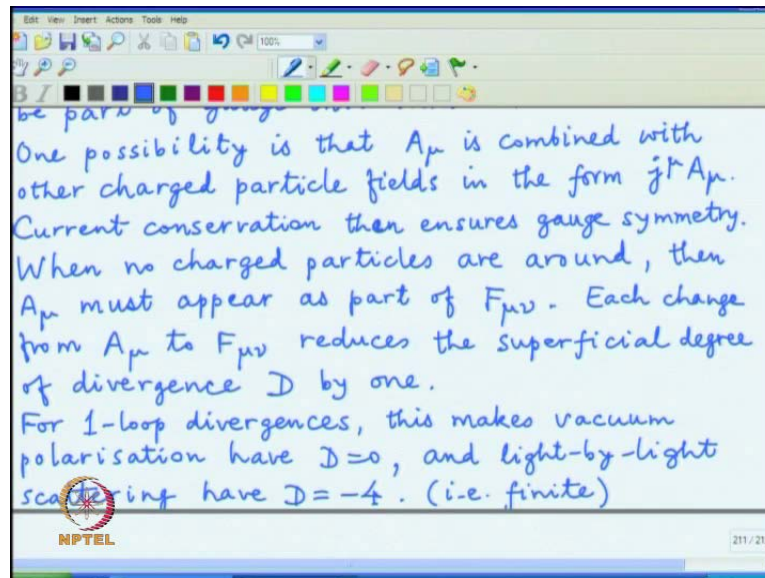 Edit View Insert Actions Tools Help
100%
be part of gauge
One possibility is that Aμ is combined with
other charged particle fields in the form j^μ Aμ.
Current conservation then ensures gauge symmetry.
When no charged particles are around, then
Aμ must appear as part of Fμν. Each change
from Aμ to Fμν reduces the superficial degree
of divergence D by one.
For 1-loop divergences, this makes vacuum
polarisation have D=0, and light-by-light
scattering have D=-4. (i.e. finite)
NPTEL
211/21